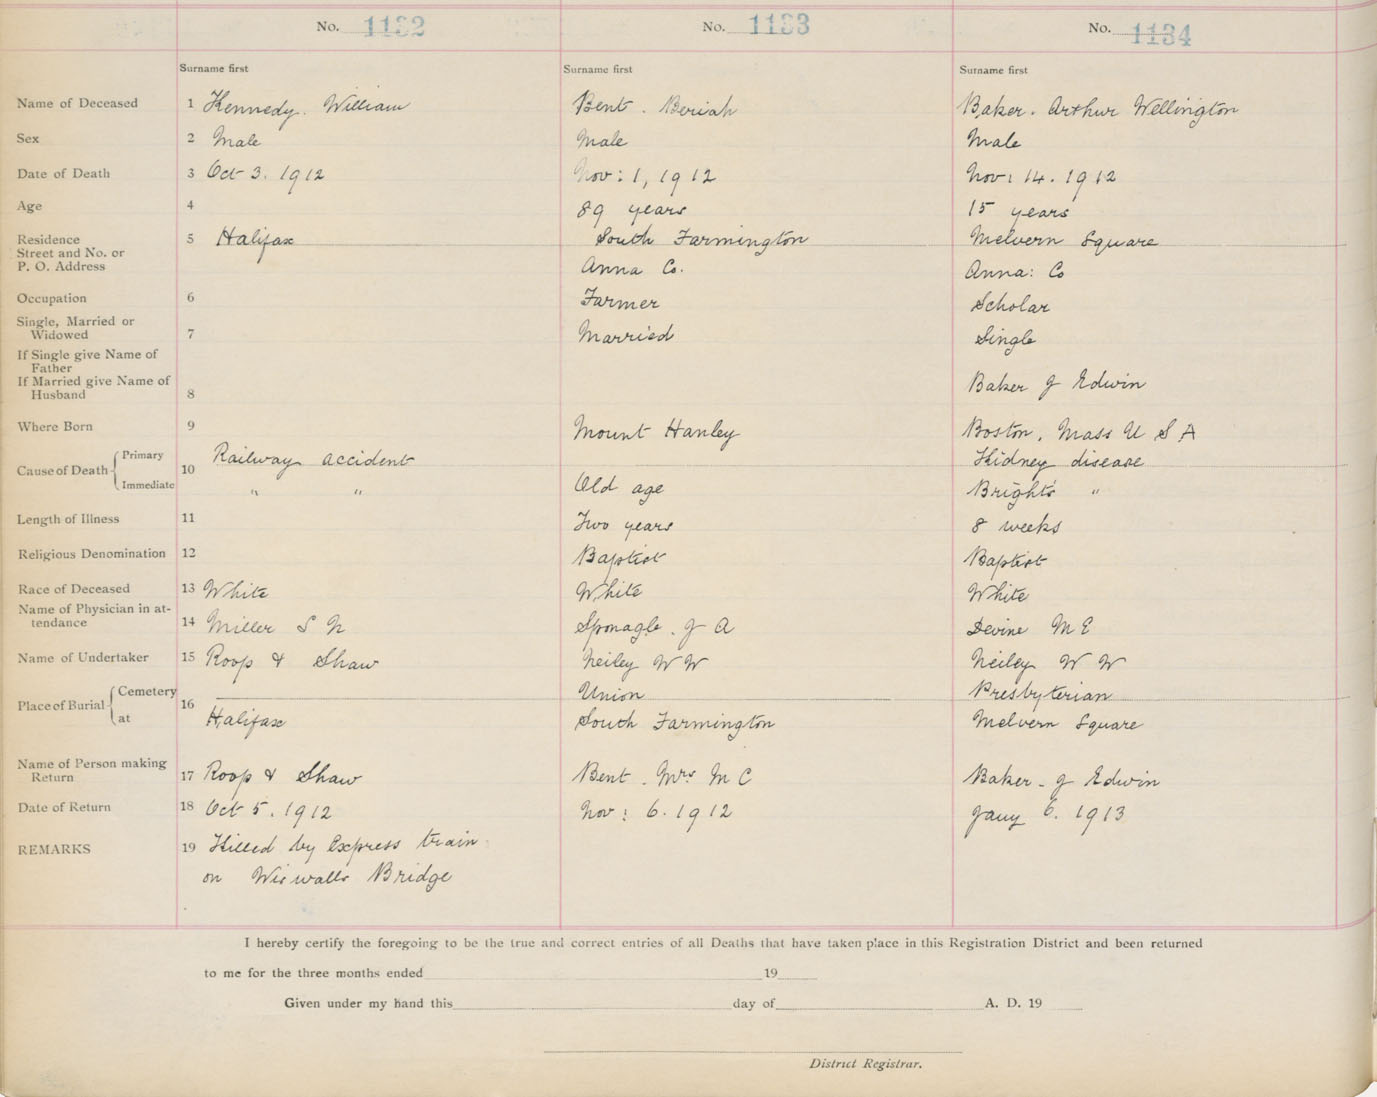 No. 1132 No. 1133 No. 1134
Surname first Surname first Surname first
Name of Deceased 1 Kennedy. William Bent. Beriah Baker. Arthur Wellington
Sex 2 Male Male Male
Date of Death 3 Oct 3. 1912 Nov: 1, 1912 Nov: 14. 1912
Age 4 89 years 15 years
Residence 5 Halifax South Farmington Melvern Square
Street and No. or
P. O. Address Anna Co. Anna: Co
Occupation 6 Farmer Scholar
Single, Married or
Widowed 7 Married Single
If Single give Name of
Father
If Married give Name of Baker J Edwin
Husband 8
Where Born 9 Mount Hanley Boston, Mass U S A
Cause of Death Primary 10 Railway accident Kidney disease
Immediate " " Old age Brights "
Length of Illness 11 Two years 8 weeks
Religious Denomination 12 Baptist Baptist
Race of Deceased 13 White White White
Name of Physician in at-
tendance 14 Miller S N Sponagle. J A Devine M E
Name of Undertaker 15 Roop & Shaw Neiley W W Neiley W W
Place of Burial Cemetery 16 Union Presbyterian
at Halifax South Farmington Melvern Square
Name of Person making
Return 17 Roop & Shaw Bent. Mrs M C Baker. J Edwin
Date of Return 18 Oct 5. 1912 Nov: 6. 1912 Jany 6. 1913
REMARKS 19 Killed by Express train
on Wiswalls Bridge
I hereby certify the foregoing to be the true and correct entries of all Deaths that have taken place in this Registration District and been returned
to me for the three months ended 19
Given under my hand this day of A. D. 19
District Registrar.